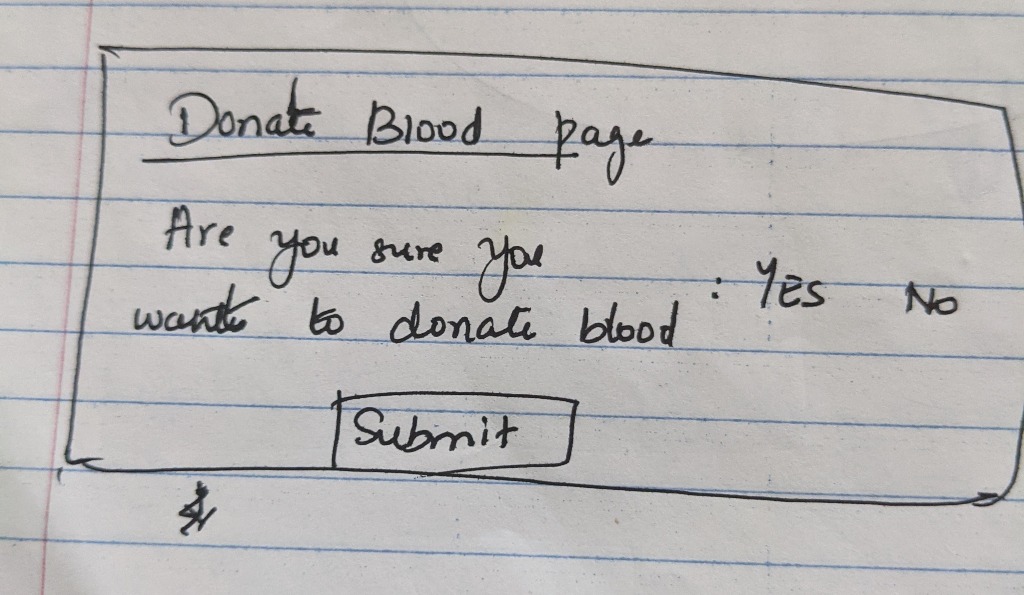 Donate Blood page
Are you sure you
wants to donate blood : YES NO
Submit